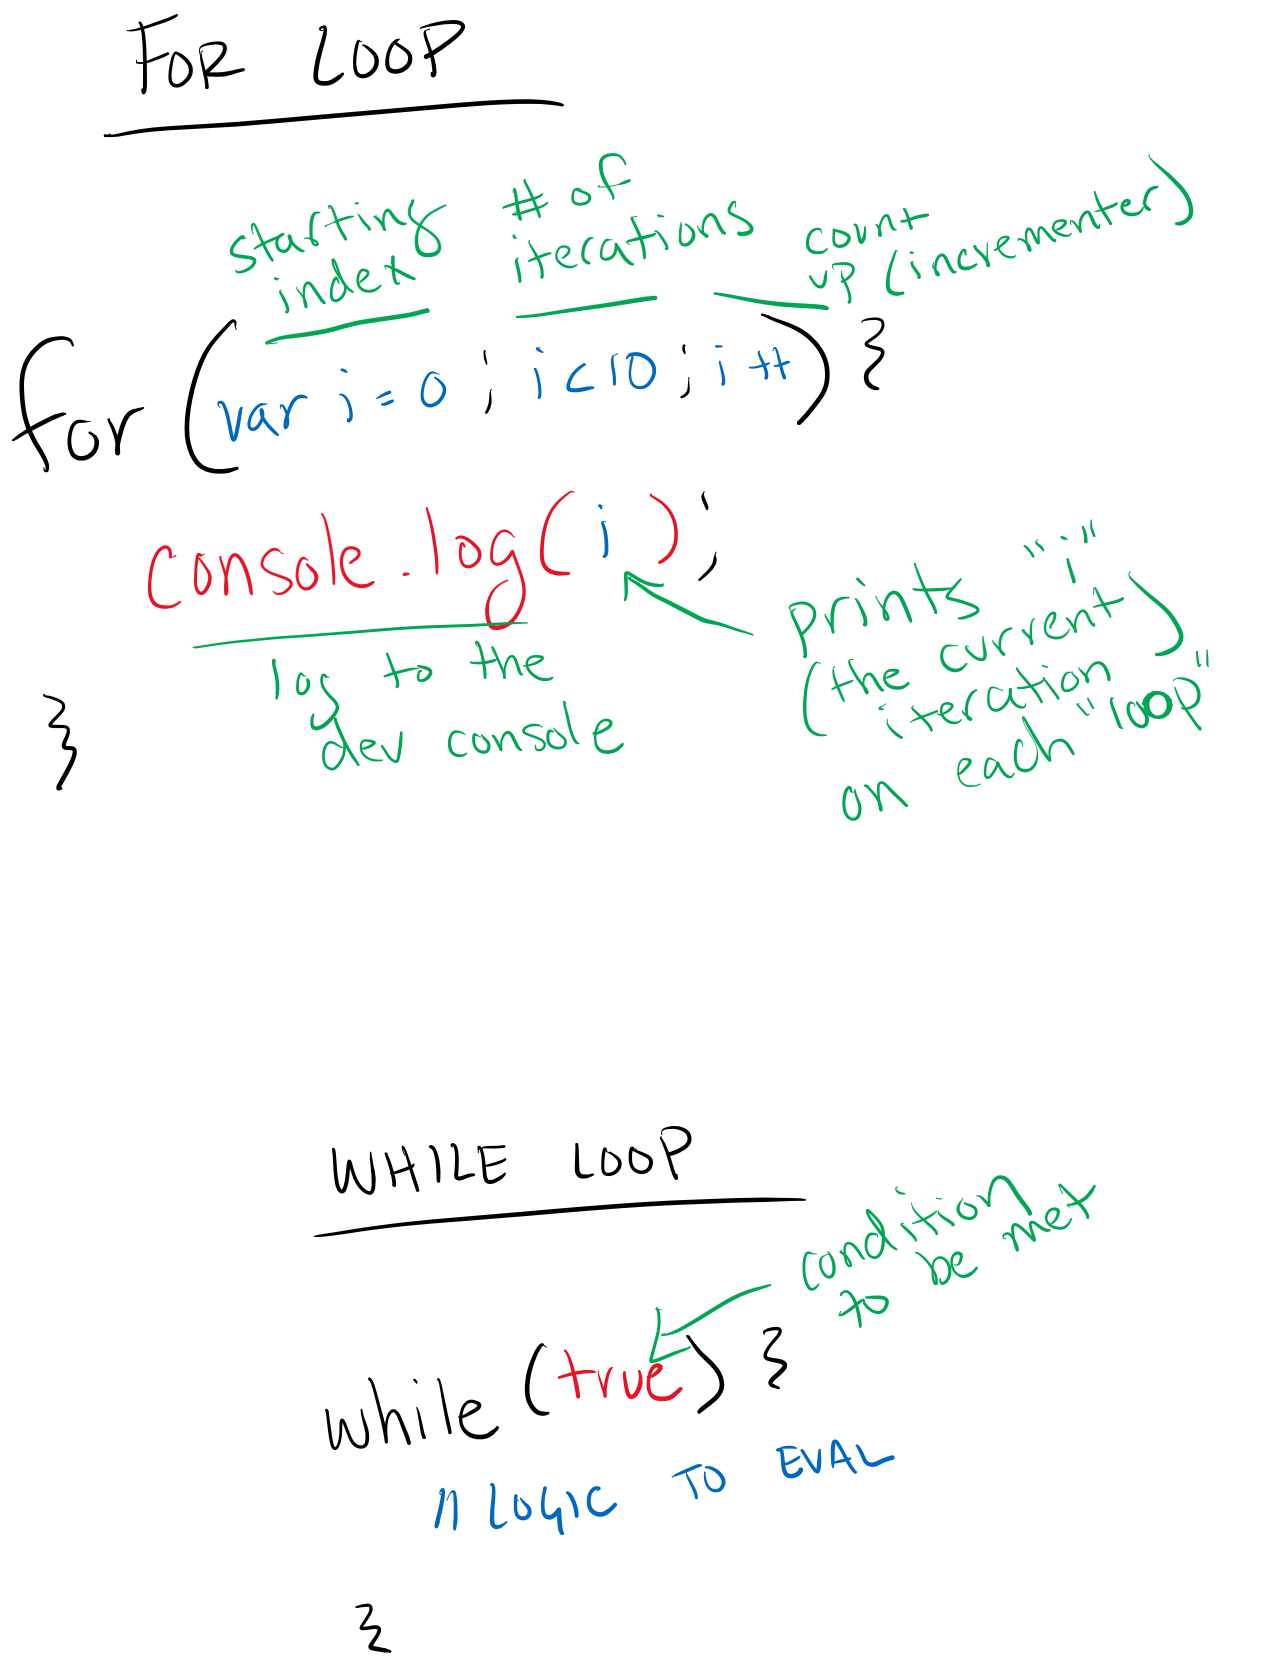 FOR LOOP
starting
index
# of
iterations
count
up (incrementer)
for (var i = 0 ; i < 10 ; i ++) {
console.log( i );
log to the
dev console
prints "i"
(the current
iteration)
on each "loop"
}
WHILE LOOP
condition
to be met
while (true) {
// LOGIC TO EVAL
}